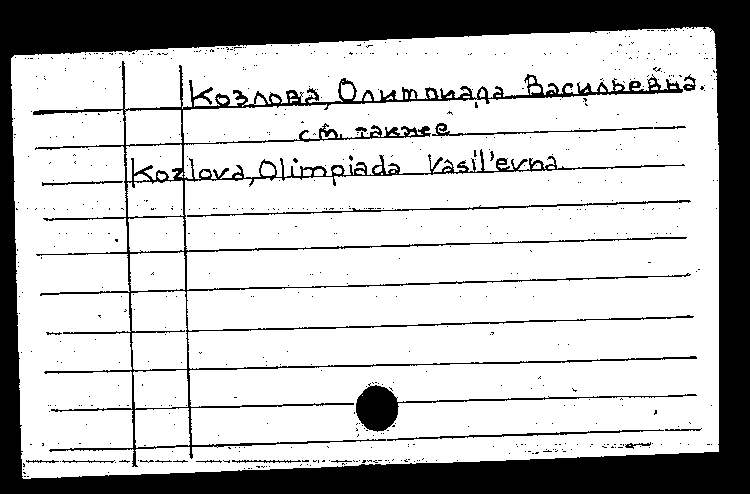 Козлова, Олимпиада Васильевна.
см. также
Kozlova, Olimpiada Vasil'evna